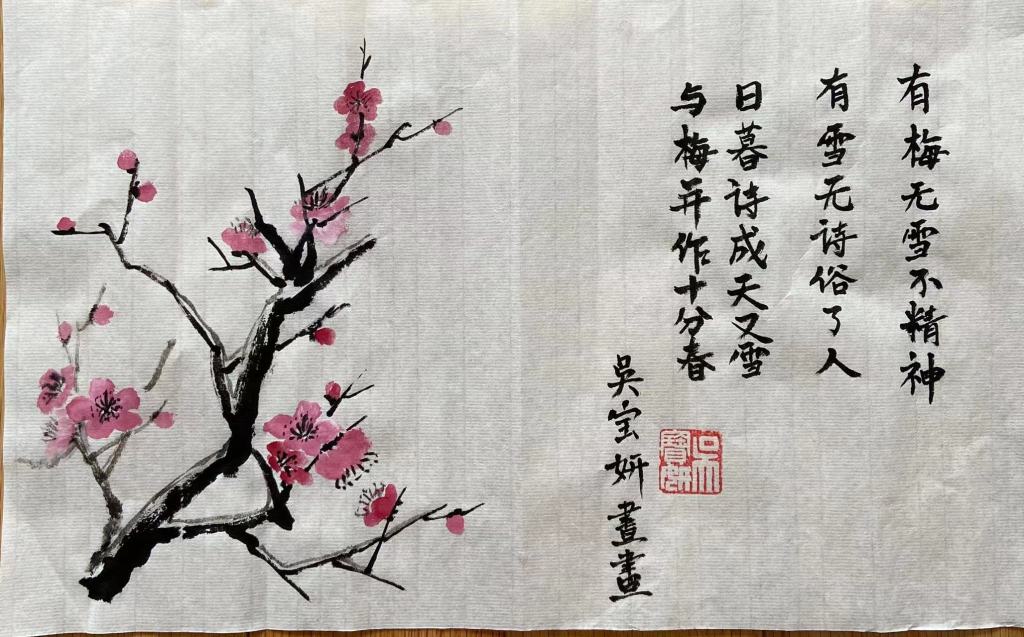 有梅无雪不精神
有雪无诗俗了人
日暮诗成天又雪
与梅并作十分春
吳宝妍書畫
吳寶妍